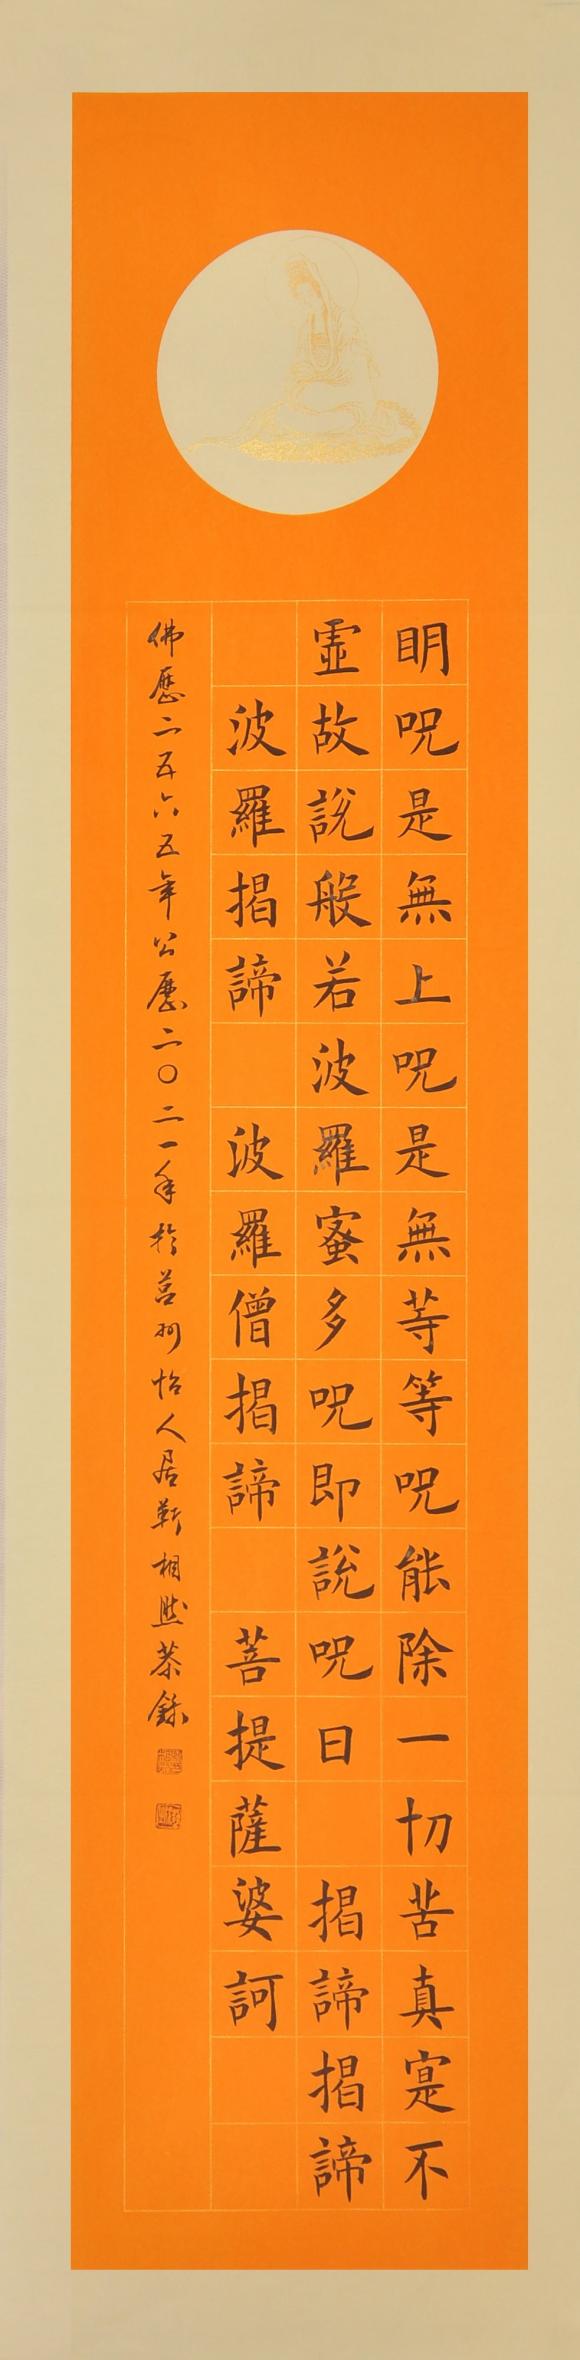 明呪是無上呪是無䓁等呪能除一切苦真寔不
虛故說般若波羅蜜多呪即說呪曰揭諦揭諦
波羅揭諦波羅僧揭諦菩提薩婆訶
佛歷二五六五年公歷二〇二一年於莒州怡人居靳相然恭錄